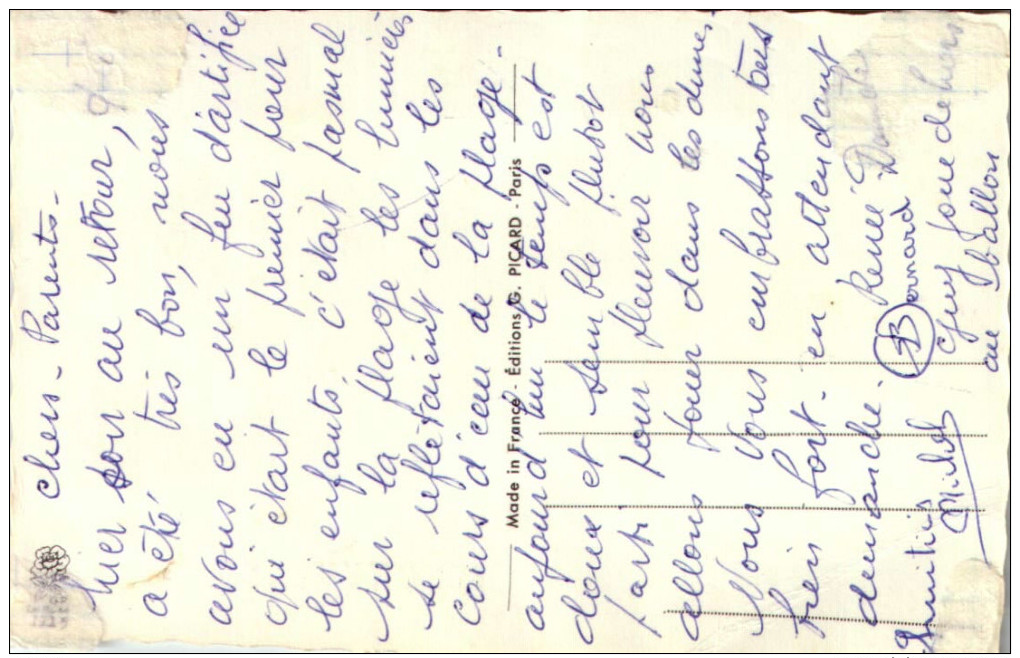 Chers - Parents -
hier soir au retour,
a été très bon, nous
avons eu un feu d'artifice
qui était le premier pour
les enfants, c'était pas mal
sur la plage les lumières
se reflétaient dans les
cours d'eau de la plage -
Made in France - Éditions G. PICARD - Paris
aujourd'hui le temps est
doux et semble plutot
parti pour pleuvoir nous
allons jouer dans les dunes.
Nous Vous embrassons tous
bien fort - en attendant
dimanche - Renée
Bernard
Michel
Guy joue dehors
au ballon